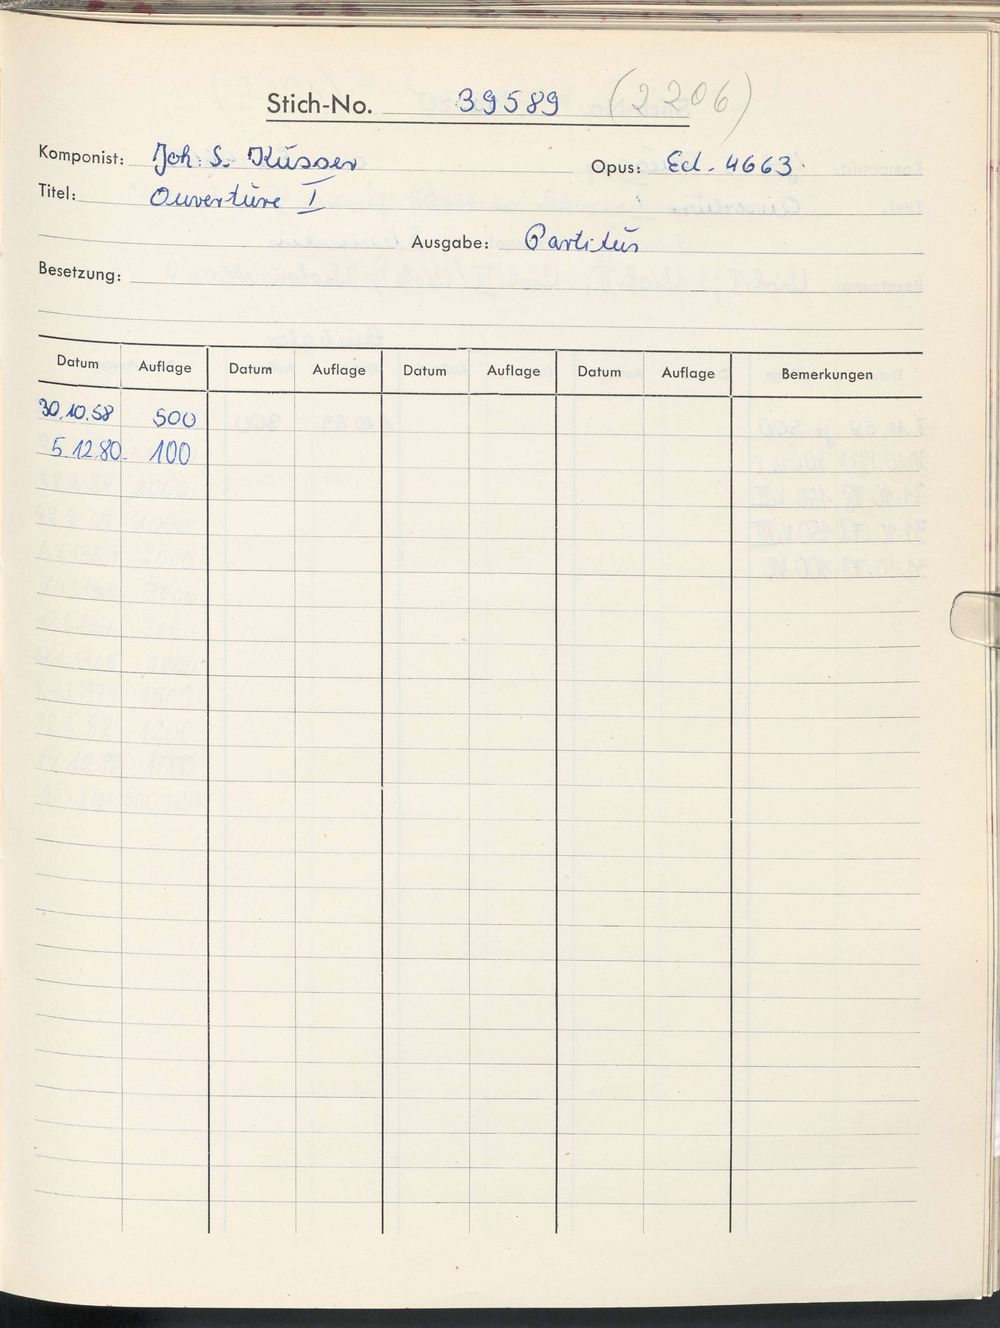 Stich-No. 39589 (2206)
Komponist: Joh. S. Kusser Opus: Ed. 4663.
Titel: Ouvertüre I
Ausgabe: Partitur
Besetzung:
Datum Auflage Datum Auflage Datum Auflage Datum Auflage Bemerkungen
30.10.58 500
5.12.80. 100